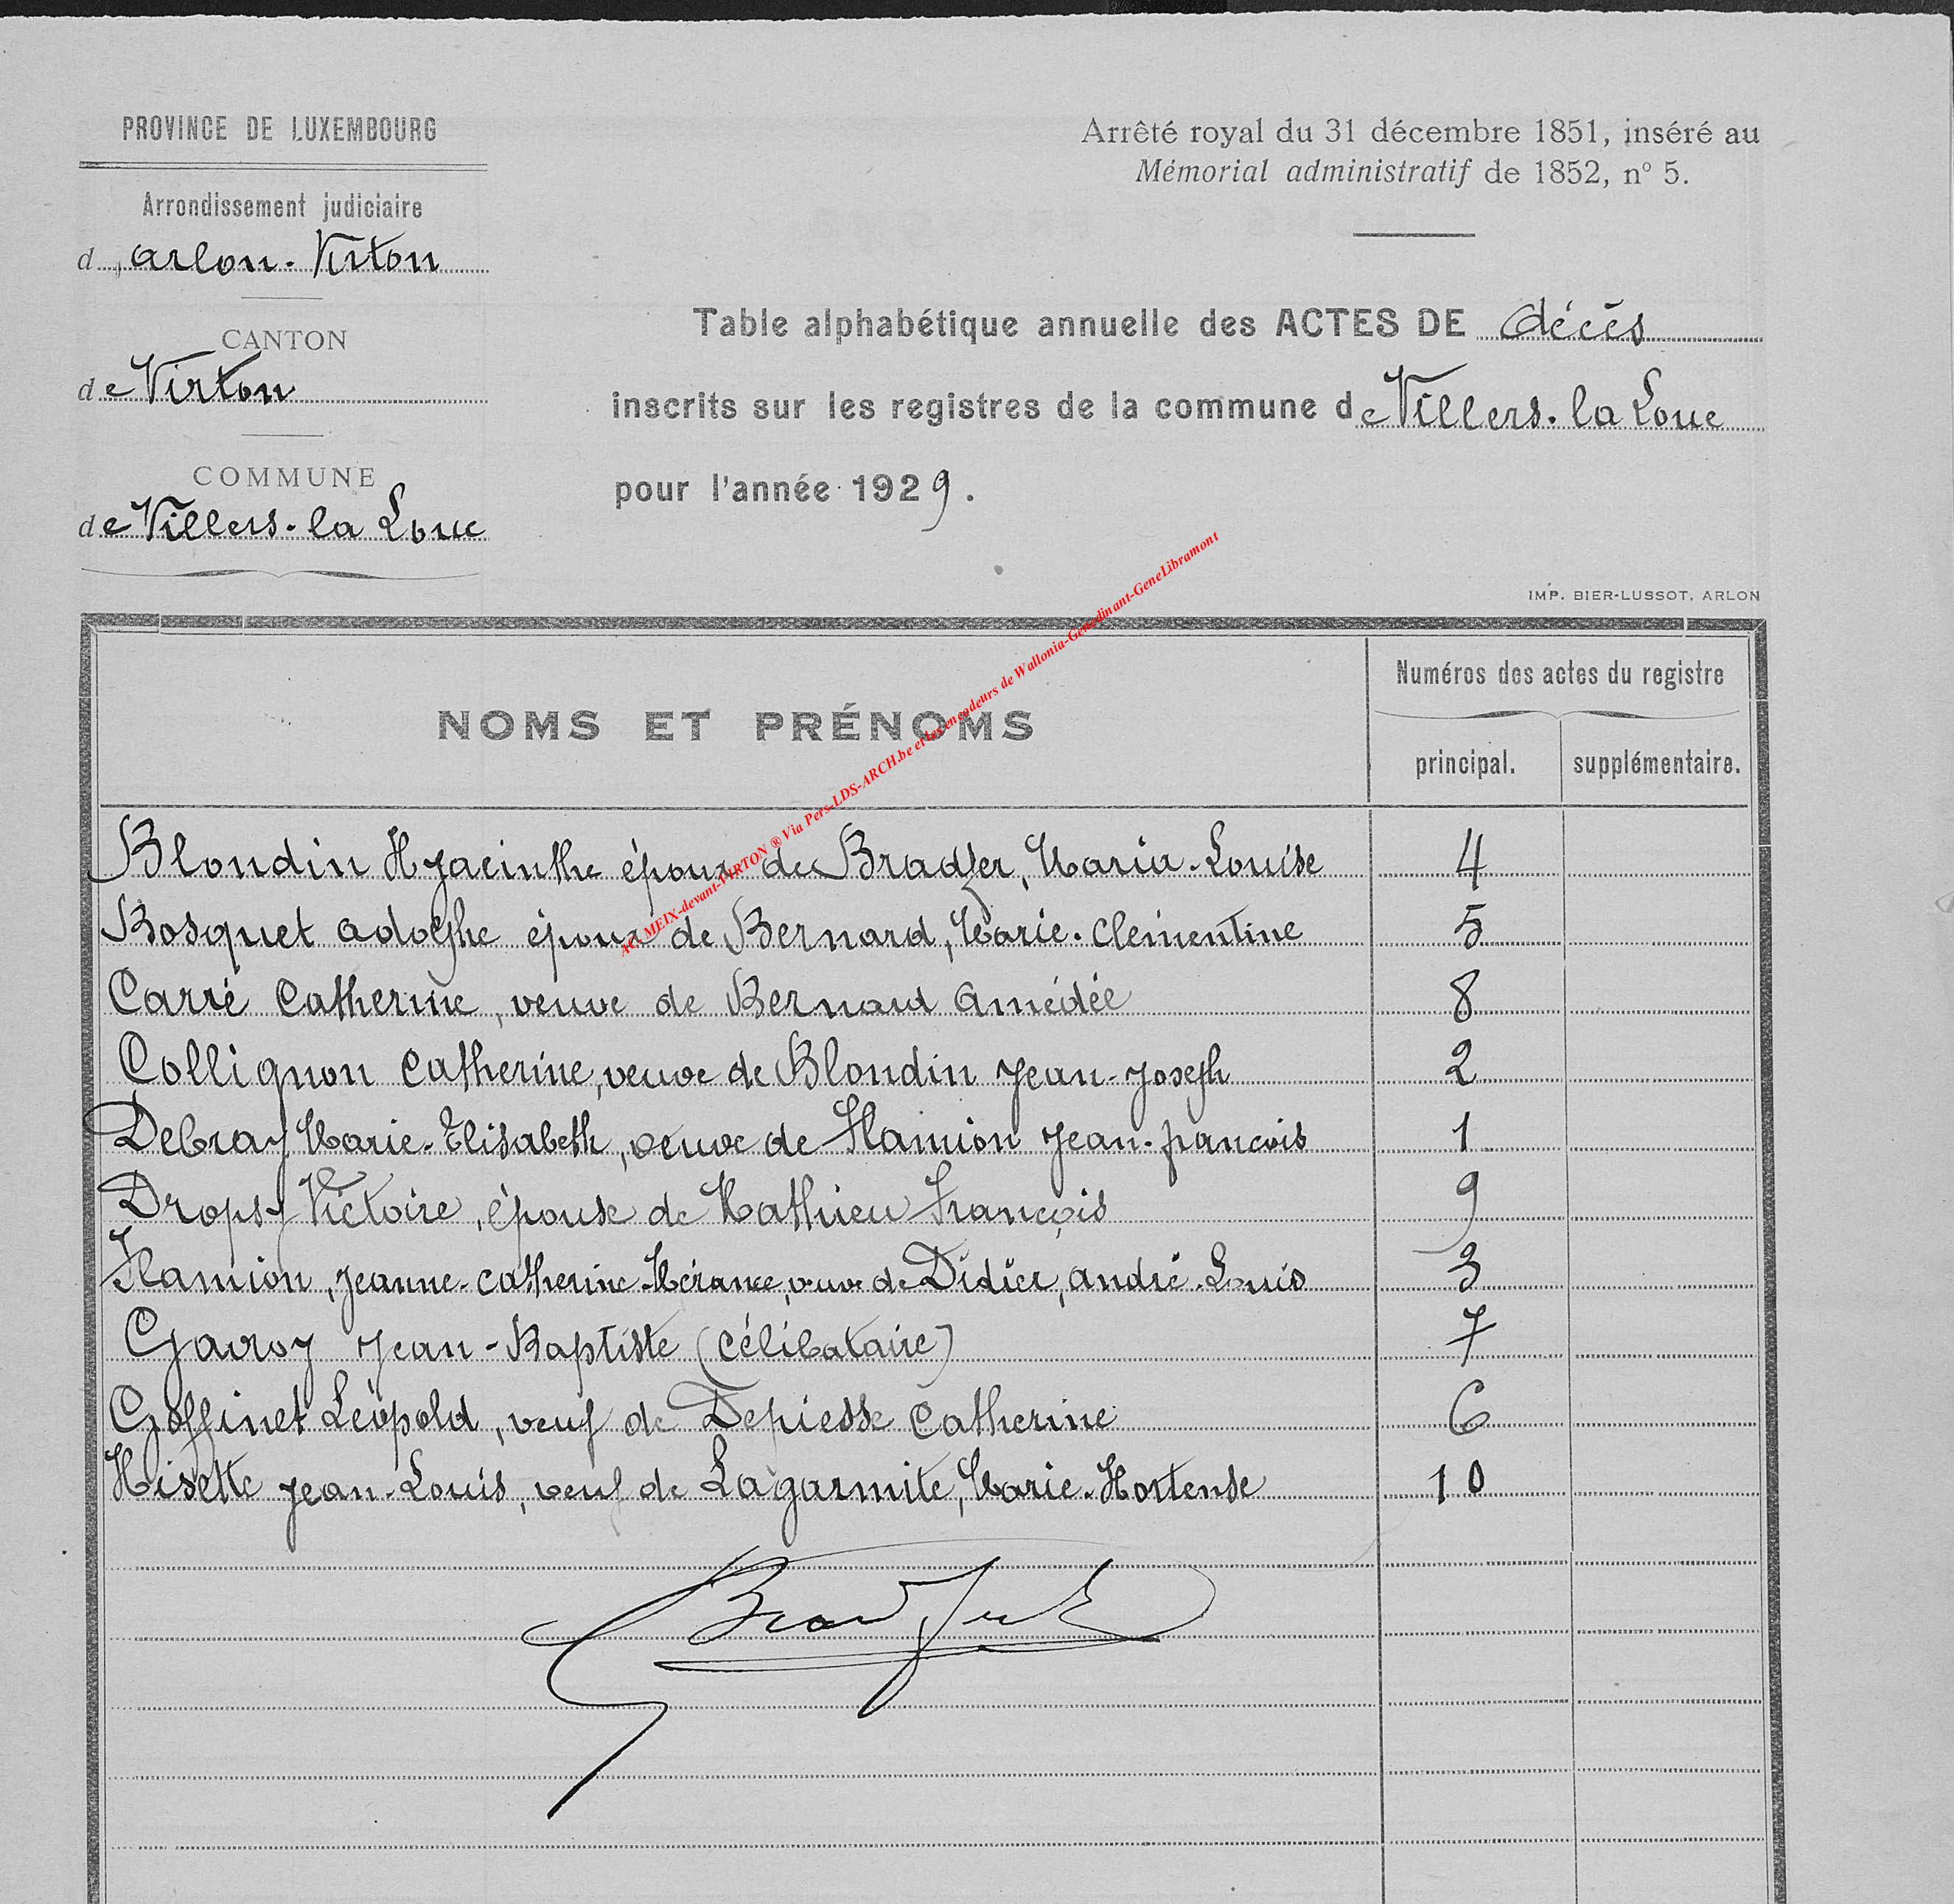 PROVINCE DE LUXEMBOURG
Arrondissement judiciaire
d'Arlon-Virton
CANTON
de Virton
COMMUNE
de Villers-la Loue
Arrêté royal du 31 décembre 1851, inséré au
Mémorial administratif de 1852, n° 5.
Table alphabétique annuelle des ACTES DE décès
inscrits sur les registres de la commune de Villers-la Loue
pour l'année 1929.
IMP. BIER-LUSSOT, ARLON
NOMS ET PRÉNOMS
Numéros des actes du registre
principal. supplémentaire.
Blondin Hyacinthe époux de Bradfer, Maria-Louise 4
Bosquet Adolphe époux de Bernard, Marie-Clémentine 5
Carré Catherine, veuve de Bernard Amédée 8
Collignon Catherine, veuve de Blondin Jean-Joseph 2
Debray Marie-Elisabeth, veuve de Flamion Jean-françois 1
Dropsy Victoire, épouse de Mathieu François 9
Flamion, Jeanne-Catherine-Mérance, veuve de Didier, André-Louis 3
Gavroy Jean-Baptiste (célibataire) 7
Goffinet Léopold, veuf de Depiesse Catherine 6
Hisette Jean-Louis, veuf de Lagarmite, Marie-Hortense 10
AC. MEIX-devant-VIRTON ® Via Pers-LDS-ARCH.be et les encodeurs de Wallonia-Genedinant-GeneLibramont